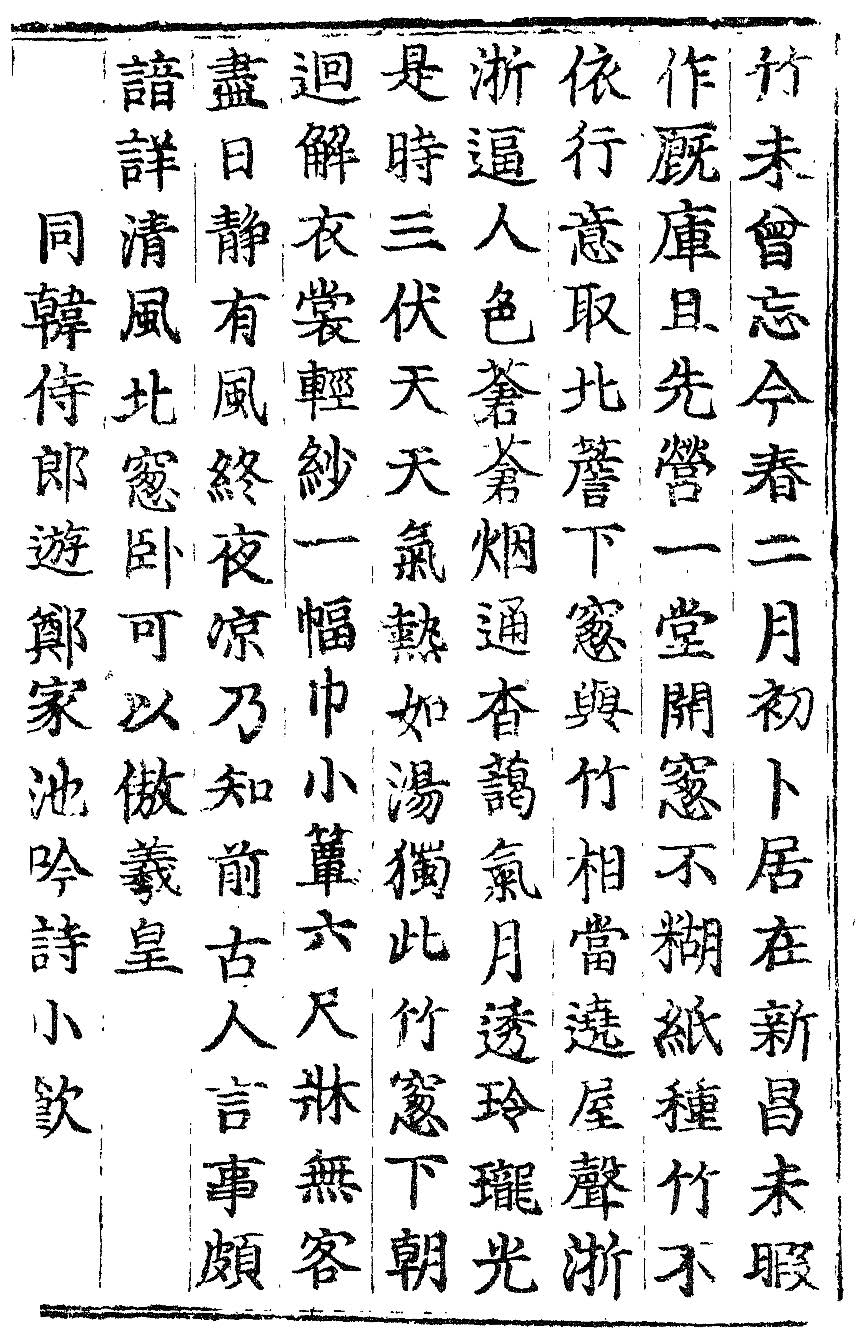 竹未曾忘今春二月初卜居在新昌未暇
作厩庫且先營一堂開窓不糊紙種竹不
依行意取北簷下窓與竹相當遶屋聲淅
淅逼人色蒼蒼烟通杳藹氣月透玲瓏光
是時三伏天天氣熱如湯獨此竹窓下朝
迴解衣裳輕紗一幅巾小簟六尺牀無客
盡日靜有風終夜凉乃知前古人言事頗
諳詳清風北窓卧可以傲羲皇
同韓侍郎遊鄭家池吟詩小飲